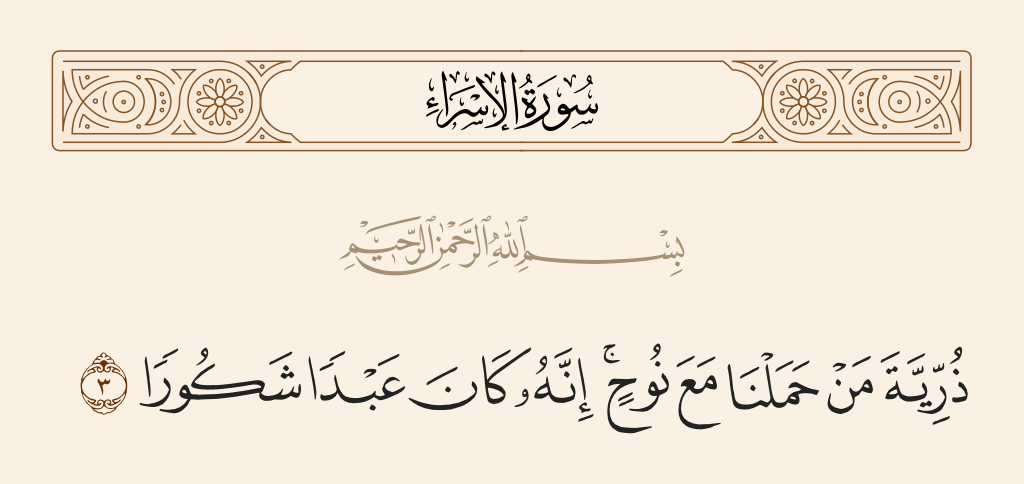 سُورَةُ الإِسْرَاءِ
بِسْمِ ٱللَّهِ ٱلرَّحْمَٰنِ ٱلرَّحِيمِ
ذُرِّيَّةَ مَنْ حَمَلْنَا مَعَ نُوحٍ ۚ إِنَّهُۥ كَانَ عَبْدًا شَكُورًا ٣